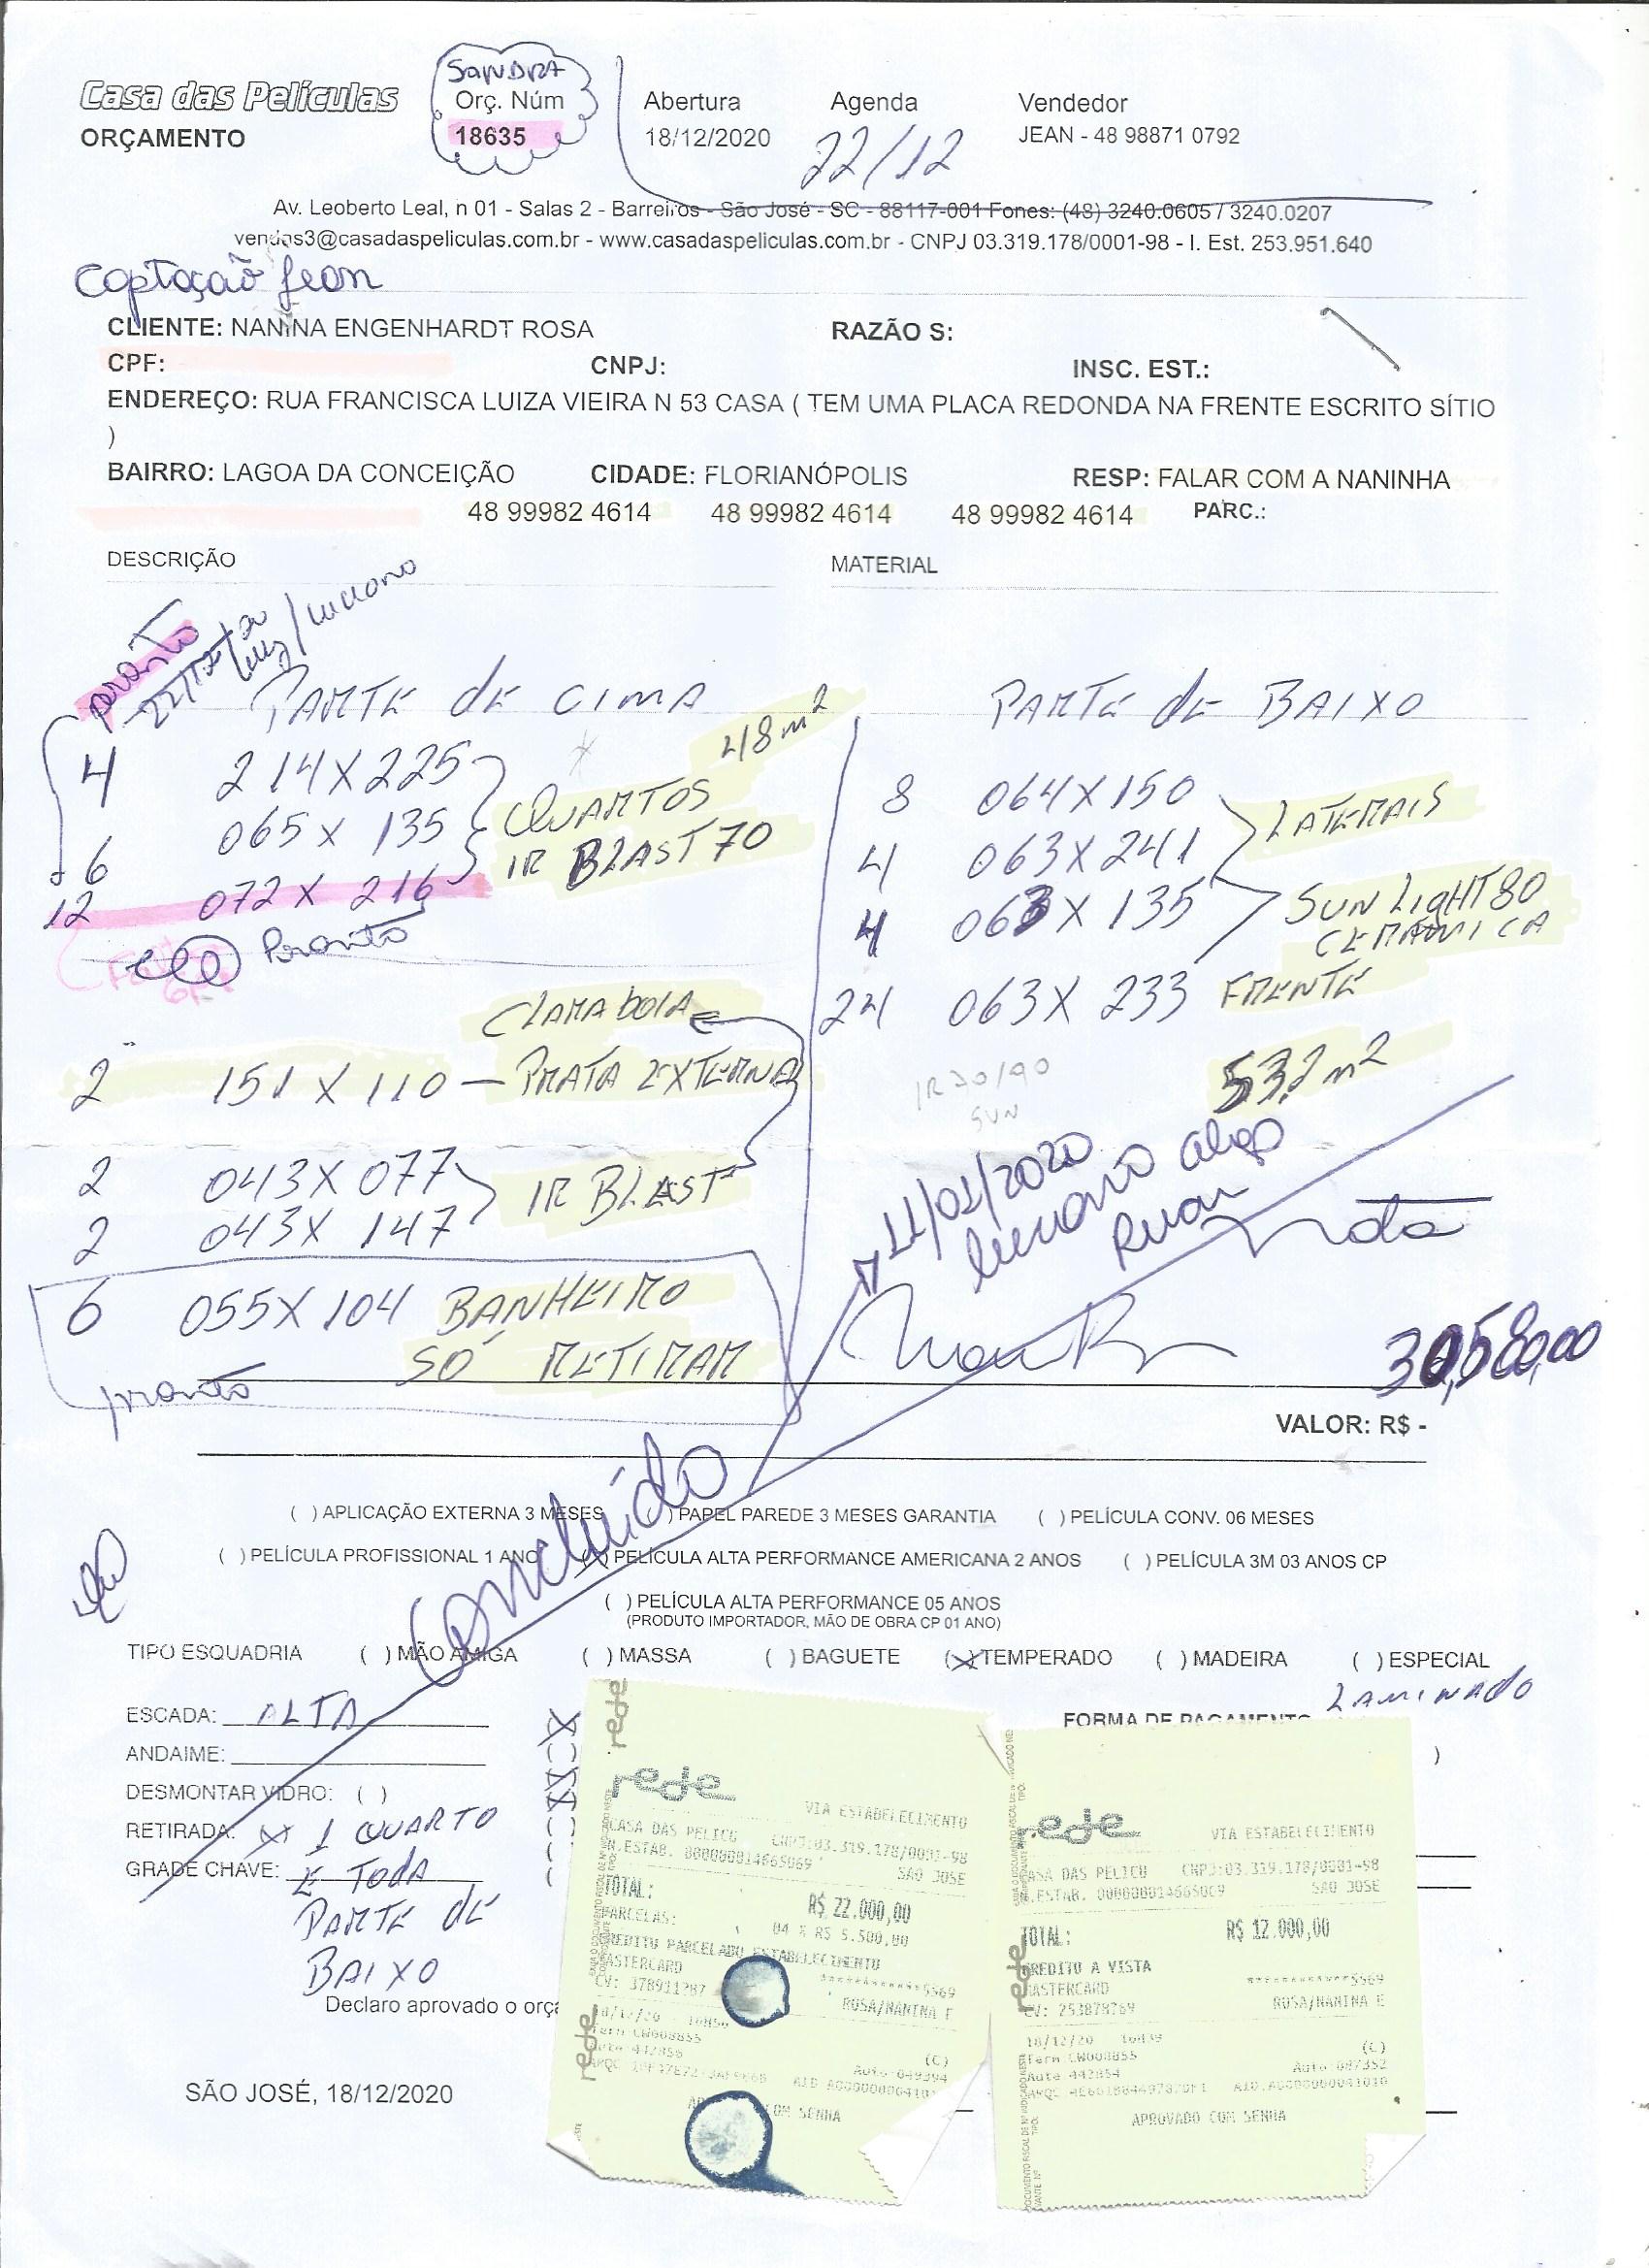 SANDRA
Casa das Películas
ORÇAMENTO
Orç. Núm
18635
Abertura
18/12/2020
Agenda
22/12
Vendedor
JEAN - 48 98871 0792
Av. Leoberto Leal, n 01 - Salas 2 - Barreiros - São José - SC - 88117-001 Fones: (48) 3240.0605 / 3240.0207
vendas3@casadaspeliculas.com.br - www.casadaspeliculas.com.br - CNPJ 03.319.178/0001-98 - I. Est. 253.951.640
Captação Jean
CLIENTE: NANINA ENGENHARDT ROSA RAZÃO S:
CPF: CNPJ: INSC. EST.:
ENDEREÇO: RUA FRANCISCA LUIZA VIEIRA N 53 CASA ( TEM UMA PLACA REDONDA NA FRENTE ESCRITO SÍTIO
)
BAIRRO: LAGOA DA CONCEIÇÃO CIDADE: FLORIANÓPOLIS RESP: FALAR COM A NANINHA
48 99982 4614 48 99982 4614 48 99982 4614 PARC.:
DESCRIÇÃO MATERIAL
pronto
luciano
PARTE DE CIMA
48 m²
4 214 X 225
6 065 X 135
12 072 X 216
QUARTOS
IR BLAST 70
Pronto
CLARABOIA
2 151 X 110 — PRATA EXTERNA
2 043 X 077
2 043 X 147
IR BLAST
6 055 X 104 BANHEIRO
SÓ RETIRAR
pronto
PARTE DE BAIXO
8 064 X 150
4 063 X 241
4 063 X 135
LATERAIS
SUN LIGHT 80
CERÂMICA
24 063 X 233 FRENTE
IR 70/90
SUN
53,2 m²
11/01/2020
luciano
Ruan
30,580,00
VALOR: R$ -
Concluído
( ) APLICAÇÃO EXTERNA 3 MESES ( ) PAPEL PAREDE 3 MESES GARANTIA ( ) PELÍCULA CONV. 06 MESES
( ) PELÍCULA PROFISSIONAL 1 ANO (X) PELÍCULA ALTA PERFORMANCE AMERICANA 2 ANOS ( ) PELÍCULA 3M 03 ANOS CP
( ) PELÍCULA ALTA PERFORMANCE 05 ANOS
(PRODUTO IMPORTADOR, MÃO DE OBRA CP 01 ANO)
TIPO ESQUADRIA ( ) MÃO AMIGA ( ) MASSA ( ) BAGUETE (X) TEMPERADO ( ) MADEIRA ( ) ESPECIAL
LAMINADO
ESCADA: ALTA
FORMA DE PAGAMENTO
ANDAIME:
DESMONTAR VIDRO: ( )
RETIRADA: (X) 1 QUARTO
GRADE CHAVE: E TODA
PARTE DE
BAIXO
Declaro aprovado o orça
SÃO JOSÉ, 18/12/2020
rede
rede
VIA ESTABELECIMENTO
CASA DAS PELICU CNPJ:03.319.178/0001-98
N.ESTAB. 000000014665069 SAO JOSE
TOTAL: R$ 22.000,00
PARCELAS: 04 X R$ 5.500,00
CREDITO PARCELADO ESTABELECIMENTO
MASTERCARD ************5569
CV: 378911287 ROSA/NANINA E
18/12/20
Term CW008855 (C)
Aute 442856 Auto 049394
APROVADO COM SENHA
rede
rede
VIA ESTABELECIMENTO
CASA DAS PELICU CNPJ:03.319.178/0001-98
N.ESTAB. 000000014665069 SAO JOSE
TOTAL: R$ 12.000,00
CREDITO A VISTA
MASTERCARD ************5569
CV: 253878769 ROSA/NANINA E
18/12/20 16h39
Term CW008855 (C)
Aute 442854 Auto 087352
APROVADO COM SENHA
rede